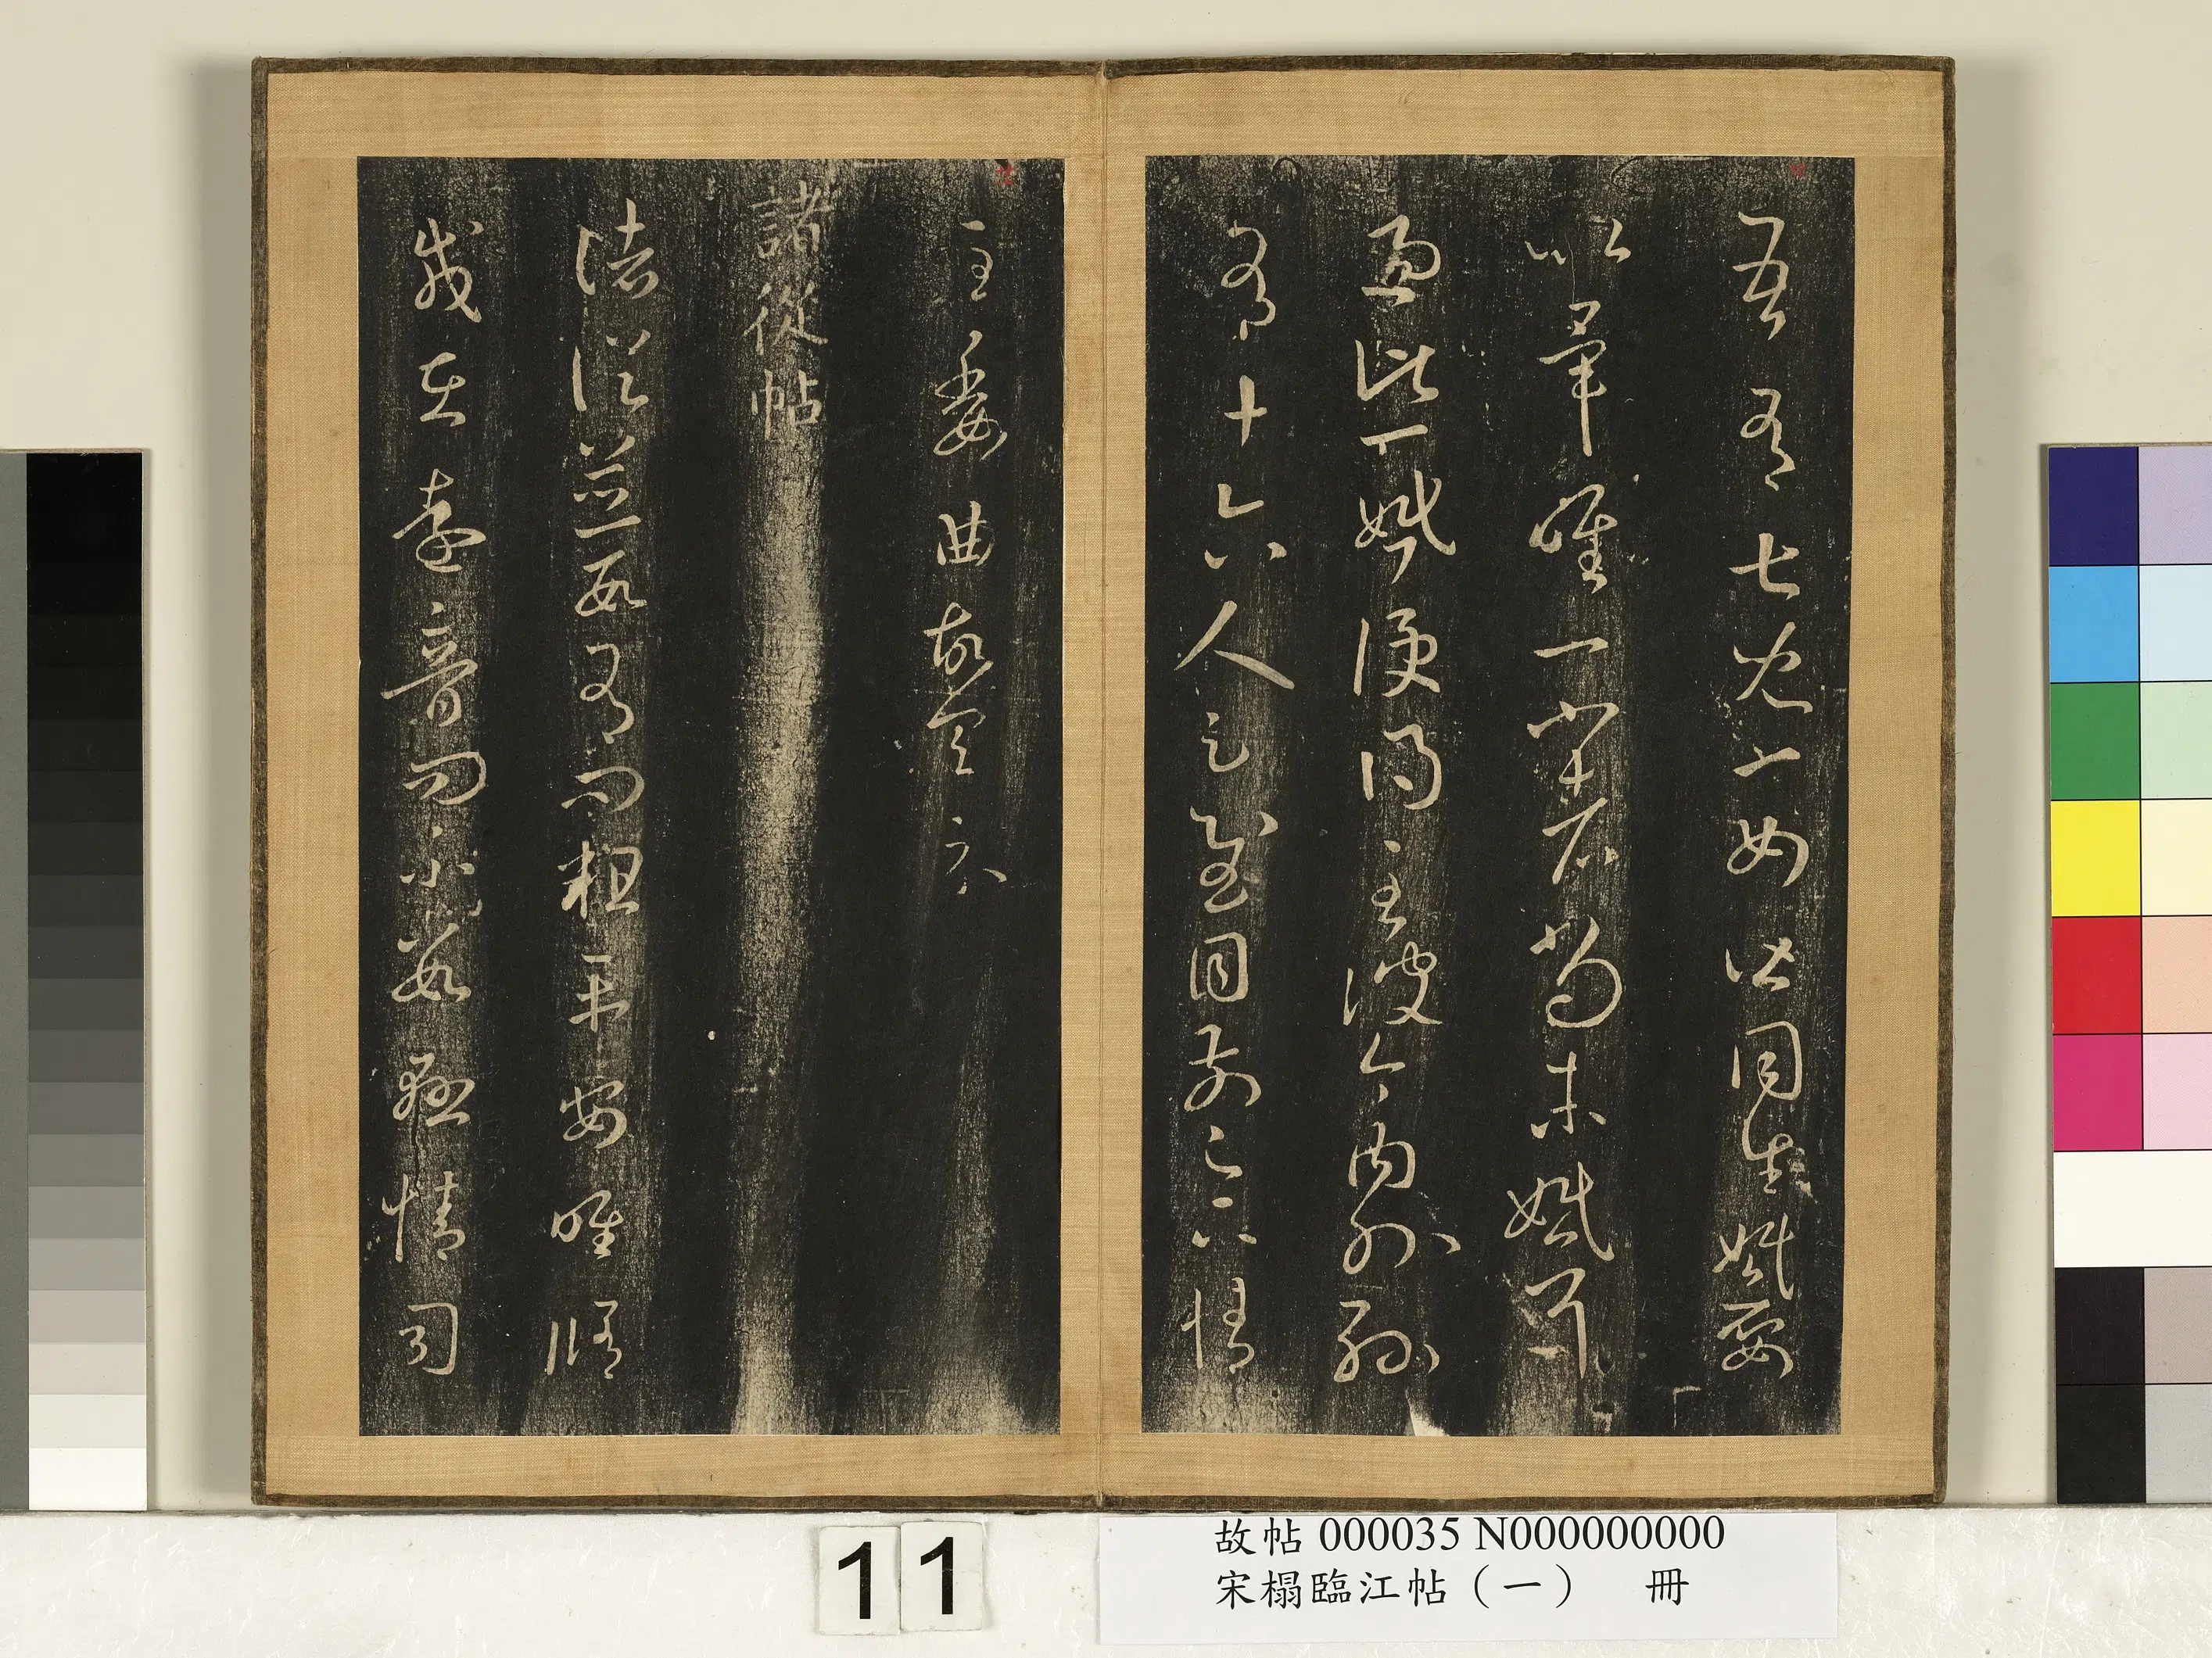 吾有七兒一女皆同生婚娶
以畢唯一小者尚未婚耳
過此一婚便得至彼今內外孫
有十六人足慰目前足下情
至委曲故具示
諸從帖
諸從並數有問粗平安唯脩
載在遠音問不數懸情司
11
故帖 000035 N000000000
宋榻臨江帖(一) 冊